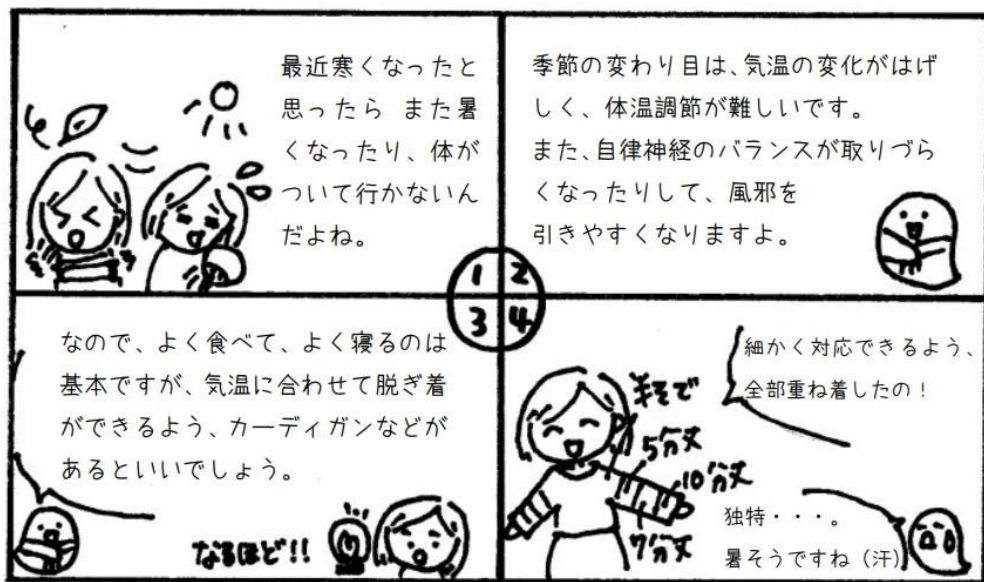 最近寒くなったと
思ったら また暑
くなったり、体が
ついて行かないん
だよね。
1
季節の変わり目は、気温の変化がはげ
しく、体温調節が難しいです。
また、自律神経のバランスが取りづら
くなったりして、風邪を
引きやすくなりますよ。
2
なので、よく食べて、よく寝るのは
基本ですが、気温に合わせて脱ぎ着
ができるよう、カーディガンなどが
あるといいでしょう。
なるほど!!
3
4
細かく対応できるよう、
全部重ね着したの！
半そで
5分丈
10分丈
7分丈
独特・・・。
暑そうですね（汗）